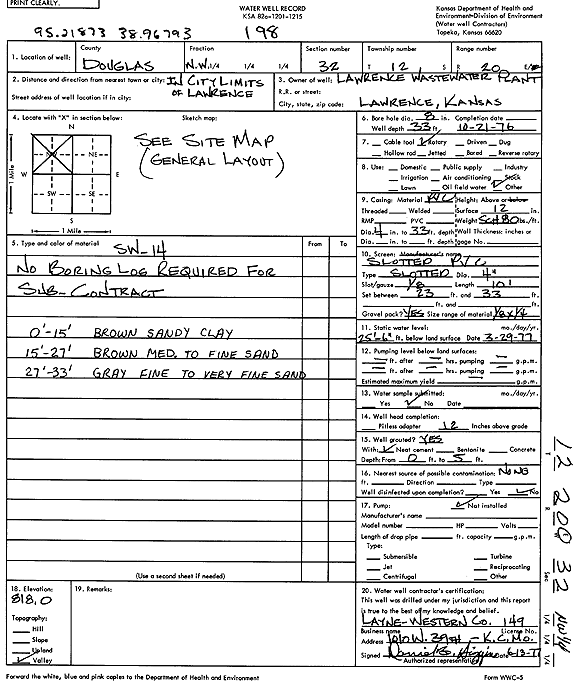 PRINT CLEARLY.
WATER WELL RECORD
KSA 82a-1201-1215
Kansas Department of Health and
Environment-Division of Environment
(Water well Contractors)
Topeka, Kansas 66620
95.21873 38.96793
198
1. Location of well:
County
DOUGLAS
Fraction
N.W. 1/4 1/4 1/4
Section number
32
Township number
T 12 S
Range number
R 20 E/W
2. Distance and direction from nearest town or city: IN CITY LIMITS
Street address of well location if in city: OF LAWRENCE
3. Owner of well: LAWRENCE WASTEWATER PLANT
R.R. or street:
City, state, zip code: LAWRENCE, KANSAS
4. Locate with "X" in section below:
Sketch map:
N
NW NE
W E
SW SE
S
1 Mile
1 Mile
SEE SITE MAP
(GENERAL LAYOUT)
6. Bore hole dia. 8 in. Completion date
Well depth 33 ft. 10-21-76
7. Cable tool Rotary Driven Dug
Hollow rod Jetted Bored Reverse rotary
8. Use: Domestic Public supply Industry
Irrigation Air conditioning Stock
Lawn Oil field water Other
9. Casing: Material PVC Height: Above or below
Threaded Welded Surface 12 in.
RMP PVC Weight SCH 80 lbs./ft.
Dia. 4 in. to 33 ft. depth Wall Thickness: inches or
Dia. in. to ft. depth gage No.
5. Type and color of material
SW-14
From To
NO BORING LOG REQUIRED FOR
SUB-CONTRACT
0'-15' BROWN SANDY CLAY
15'-27' BROWN MED. TO FINE SAND
27'-33' GRAY FINE TO VERY FINE SAND
(Use a second sheet if needed)
10. Screen: Manufacturer's name
SLOTTED PVC
Type SLOTTED Dia. 4"
Slot/gauze 1/8 Length 10'
Set between 23 ft. and 33 ft.
ft. and ft.
Gravel pack? YES Size range of material 1/8 x 1/4
11. Static water level: mo./day/yr.
25'-6" ft. below land surface Date 3-29-77
12. Pumping level below land surfaces:
ft. after hrs. pumping g.p.m.
ft. after hrs. pumping g.p.m.
Estimated maximum yield g.p.m.
13. Water sample submitted: mo./day/yr.
Yes No Date
14. Well head completion:
Pitless adapter 12 Inches above grade
15. Well grouted? YES
With: Neat cement Bentonite Concrete
Depth: From 0 ft. to 5 ft.
16. Nearest source of possible contamination: NONE
ft. Direction Type
Well disinfected upon completion? Yes No
17. Pump: Not installed
Manufacturer's name
Model number HP Volts
Length of drop pipe ft. capacity g.p.m.
Type:
Submersible Turbine
Jet Reciprocating
Centrifugal Other
18. Elevation:
818.0
Topography:
Hill
Slope
Upland
Valley
19. Remarks:
20. Water well contractor's certification:
This well was drilled under my jurisdiction and this report
is true to the best of my knowledge and belief.
LAYNE-WESTERN CO. 149
Business name License No.
Address 1010 W. 39TH - K.C. MO.
Signed Date 6-13-77
Authorized representative
Forward the white, blue and pink copies to the Department of Health and Environment
Form WWC-5
T 12 R 20 Sec 32
1/4 1/4 1/4